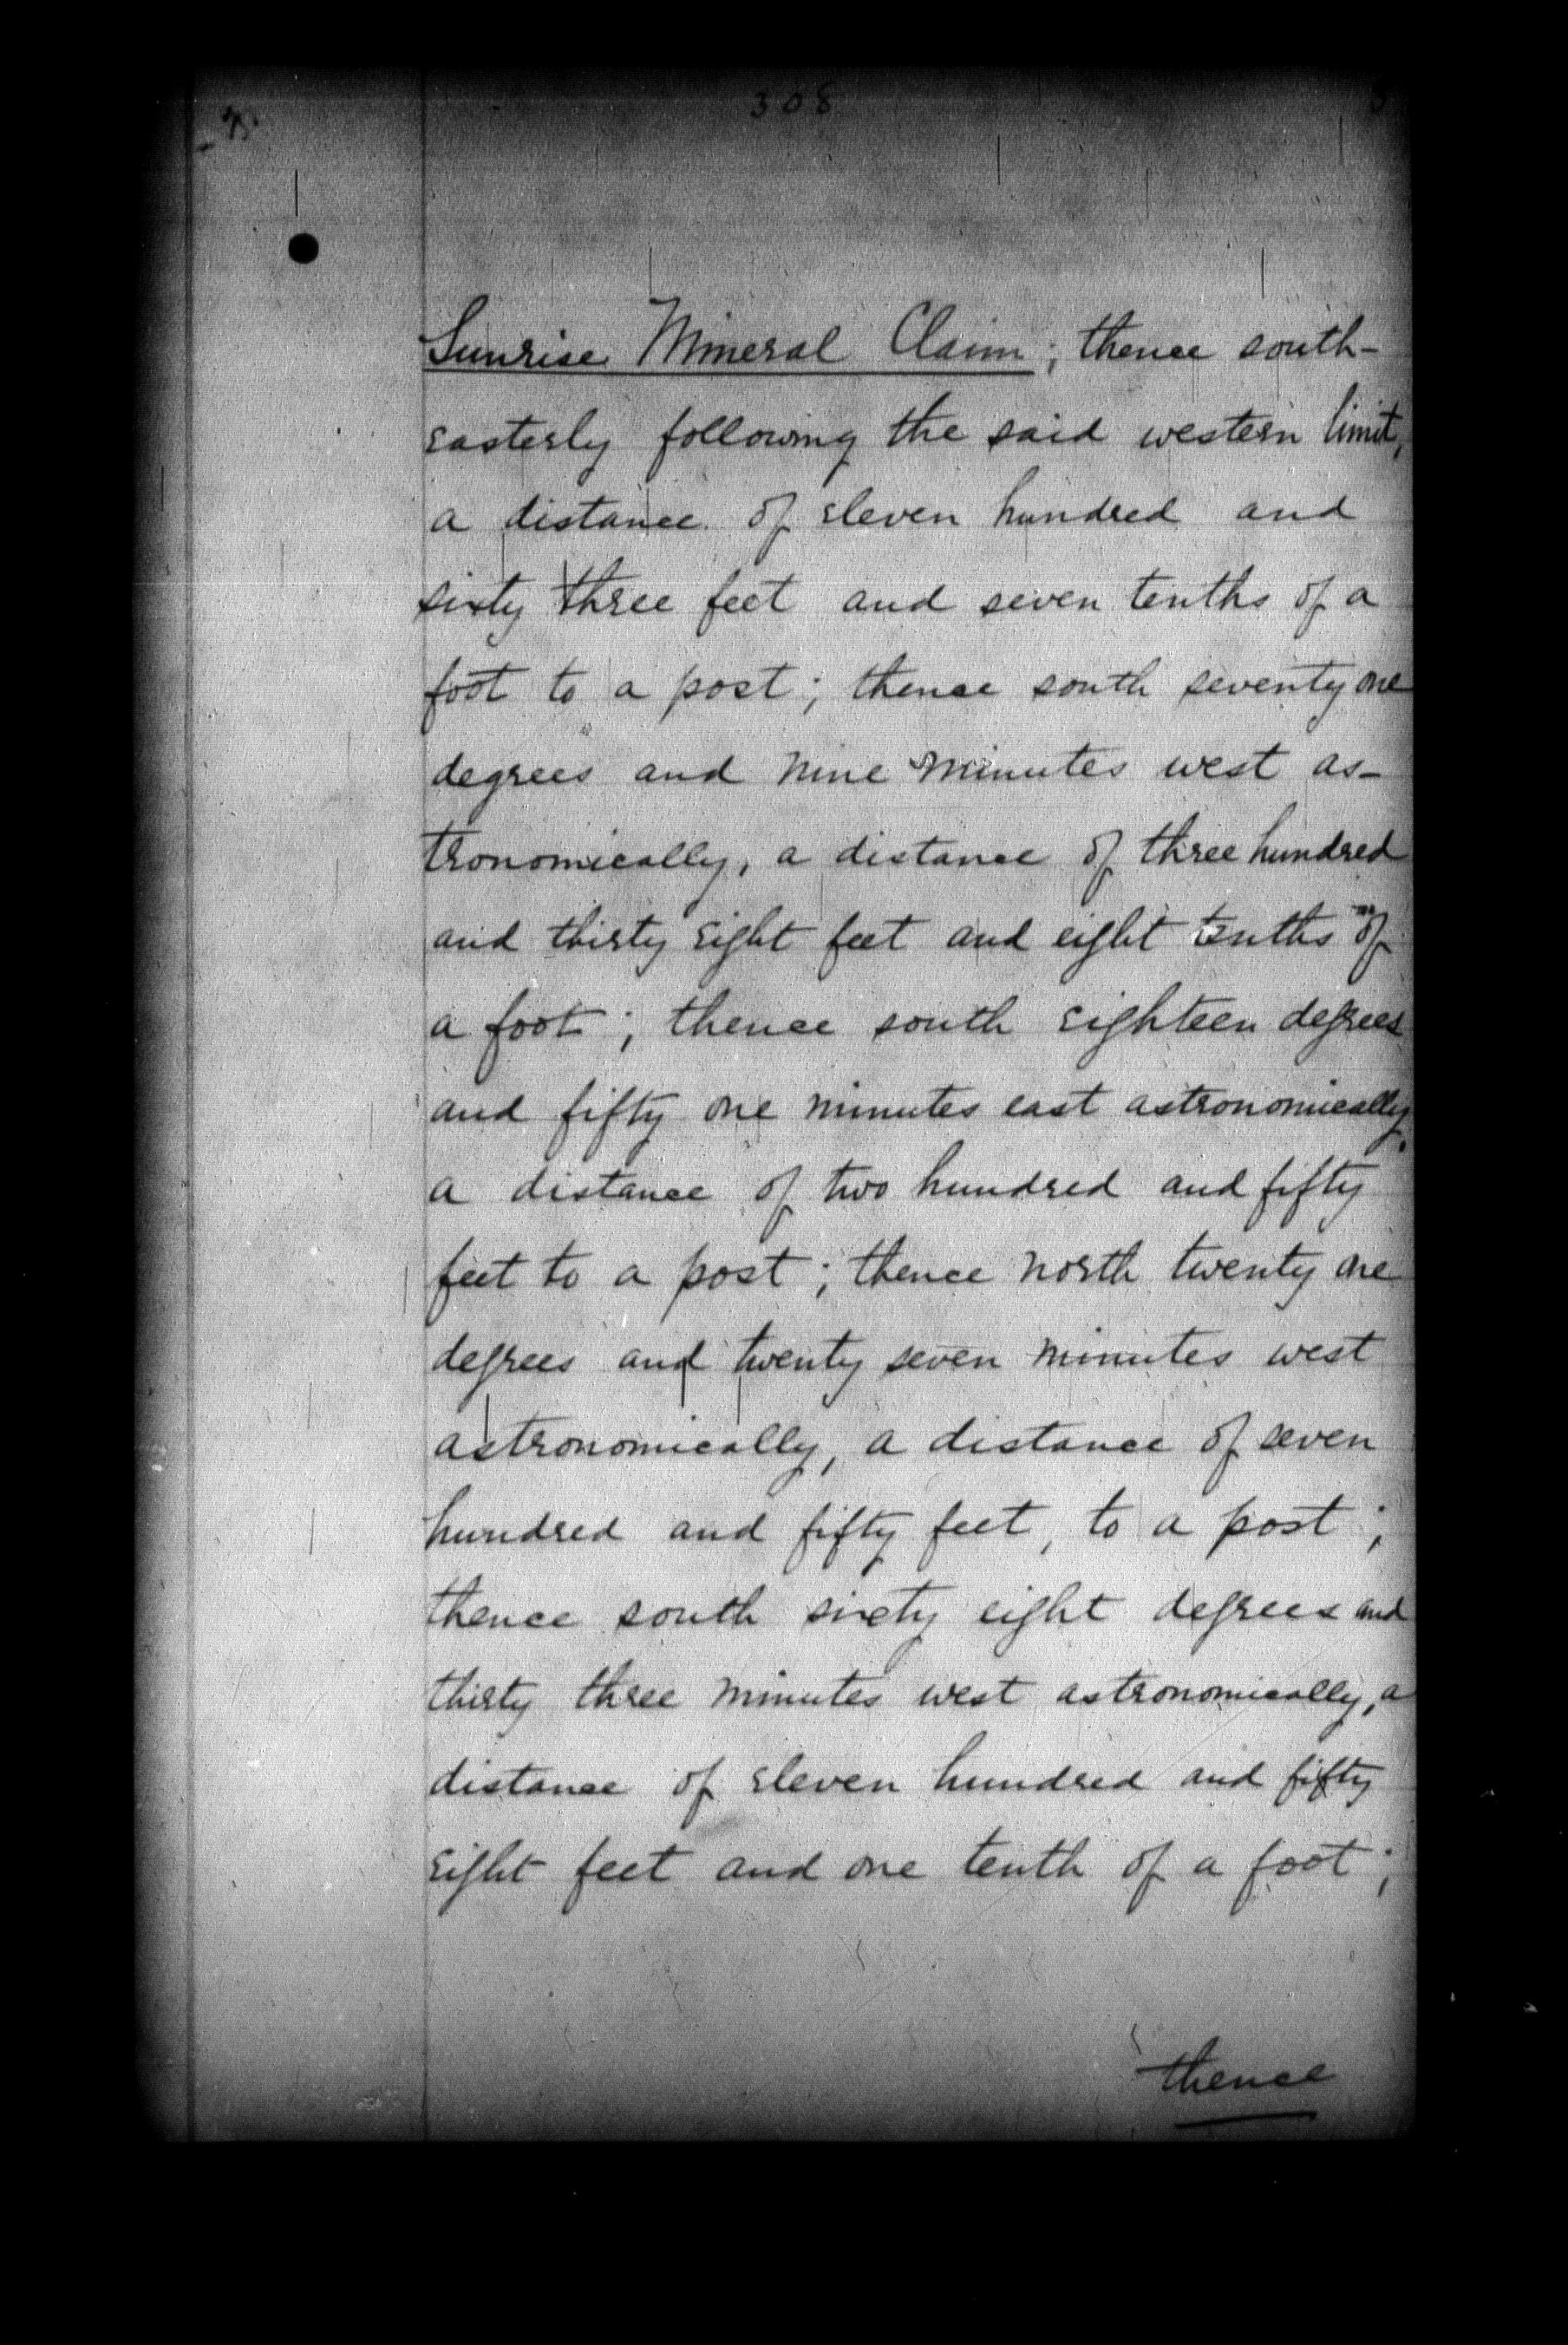 308
Sunrise Mineral Claim; thence south-
easterly following the said western limit,
a distance of eleven hundred and
sixty three feet and seven tenths of a
foot to a post; thence south seventy one
degrees and nine minutes west as-
tronomically, a distance of three hundred
and thirty eight feet and eight tenths of
a foot; thence south eighteen degrees
and fifty one minutes east astronomically,
a distance of two hundred and fifty
feet to a post; thence north twenty one
degrees and twenty seven minutes west
astronomically, a distance of seven
hundred and fifty feet, to a post;
thence south sixty eight degrees and
thirty three minutes west astronomically, a
distance of eleven hundred and fifty
eight feet and one tenth of a foot;
thence